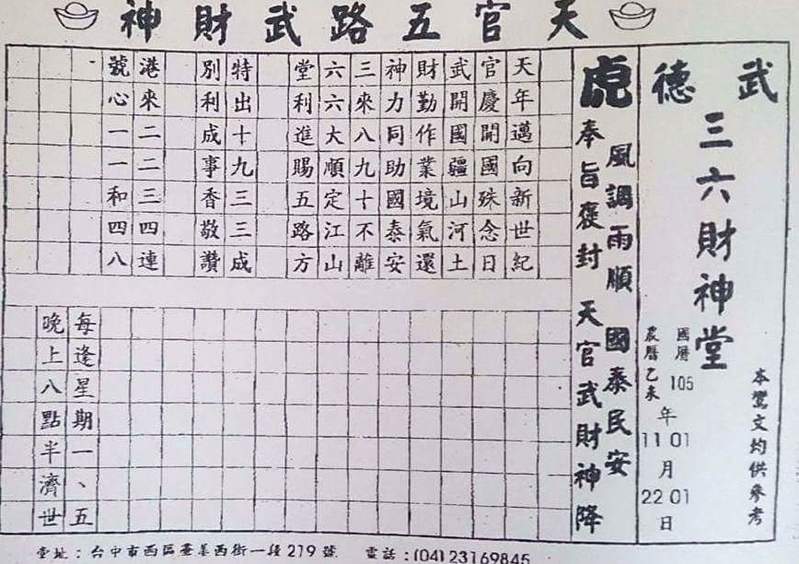 天官五路武財神
武德
三六財神堂
本鸞文均供參考
國曆105年01月01日
農曆乙未年11月22日
虎
風調雨順 國泰民安
奉旨褒封 天官武財神降
天年邁向新世紀
官慶開國殊念日
武開國疆山河土
財勤作業境氣還
神力同助國泰安
三來八九十不離
六六大順定江山
堂利進賜五路方
特出十九三三成
別利成事香敬讚
港來二二三四連
號心一一和四八
每逢星期一、五
晚上八點半濟世
堂址：台中市西區華美西街一段279號 電話：(04)23169845